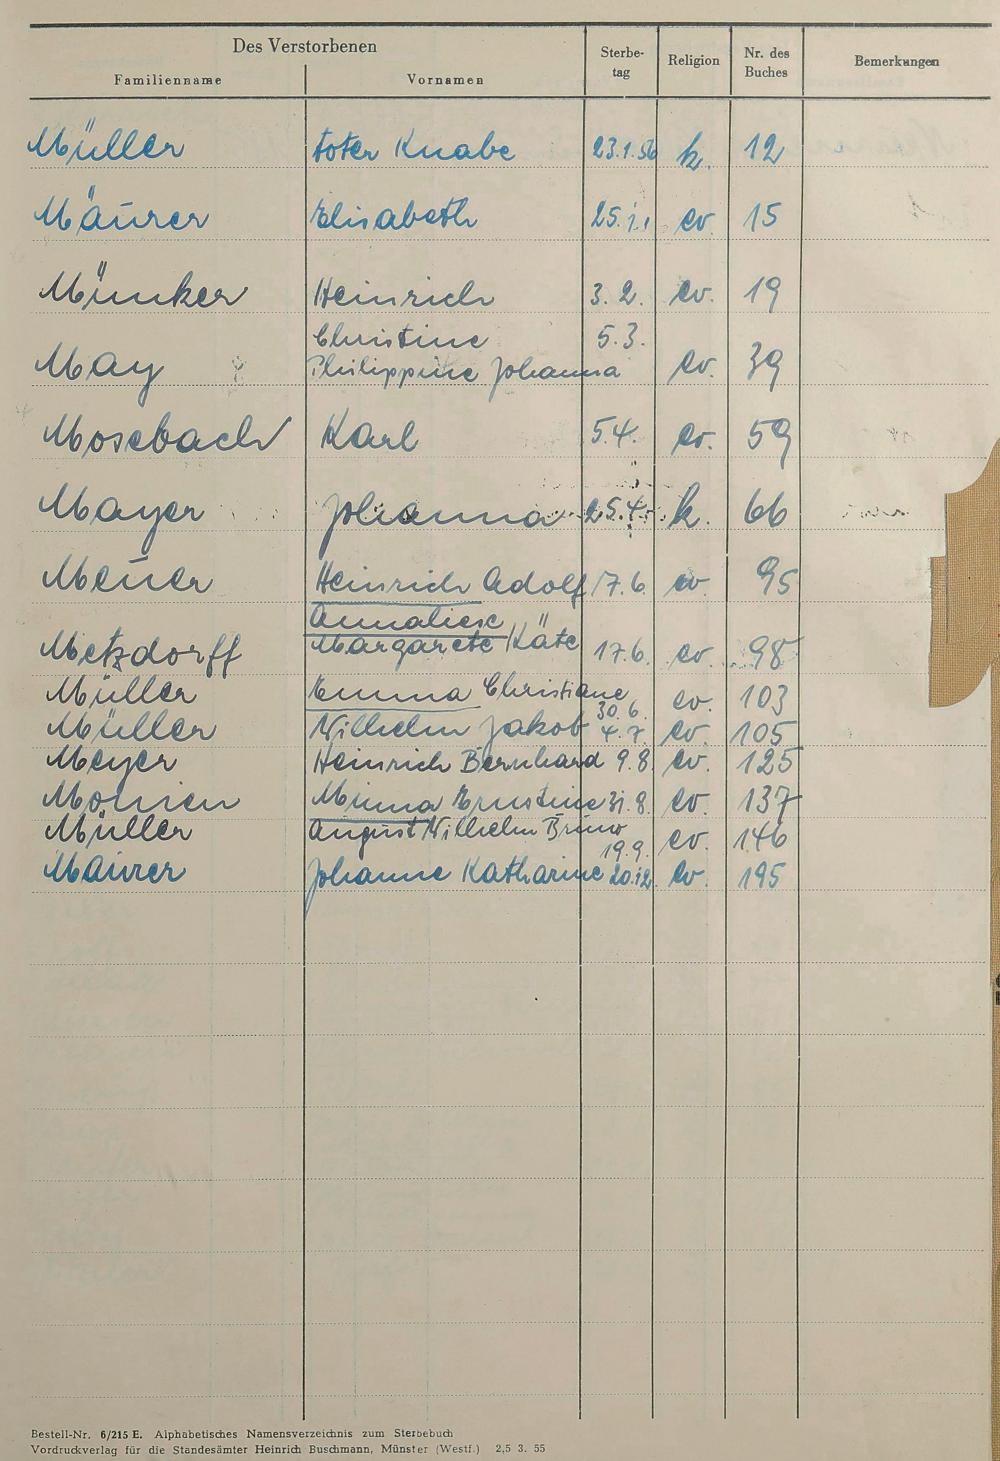 Des Verstorbenen
Familienname Vornamen Sterbe-tag Religion Nr. des Buches Bemerkungen
Müller toter Knabe 23.1.56 k. 12
Maurer Elisabeth 25.1. ev. 15
Münker Heinrich 3.2. ev. 19
Christine 5.3.
May Philippine Johanna ev. 39
Mosebach Karl 5.4. ev. 59
Mayer Johanna 25.4. k. 66
Meuer Heinrich Adolf 17.6. ev. 95
Annaliese
Metzdorff Margarete Käte 17.6. ev. 98
Müller Emma Christiane 30.6. ev. 103
Müller Wilhelm Jakob 4.7. ev. 105
Meyer Heinrich Bernhard 9.8. ev. 125
Monien Minna Ernstine 31.8. ev. 137
Müller August Wilhelm Bruno 19.9. ev. 146
Maurer Johanne Katharine 20.12. ev. 195
Bestell-Nr. 6/215 E. Alphabetisches Namensverzeichnis zum Sterbebuch
Vordruckverlag für die Standesämter Heinrich Buschmann, Münster (Westf.) 2,5 3. 55